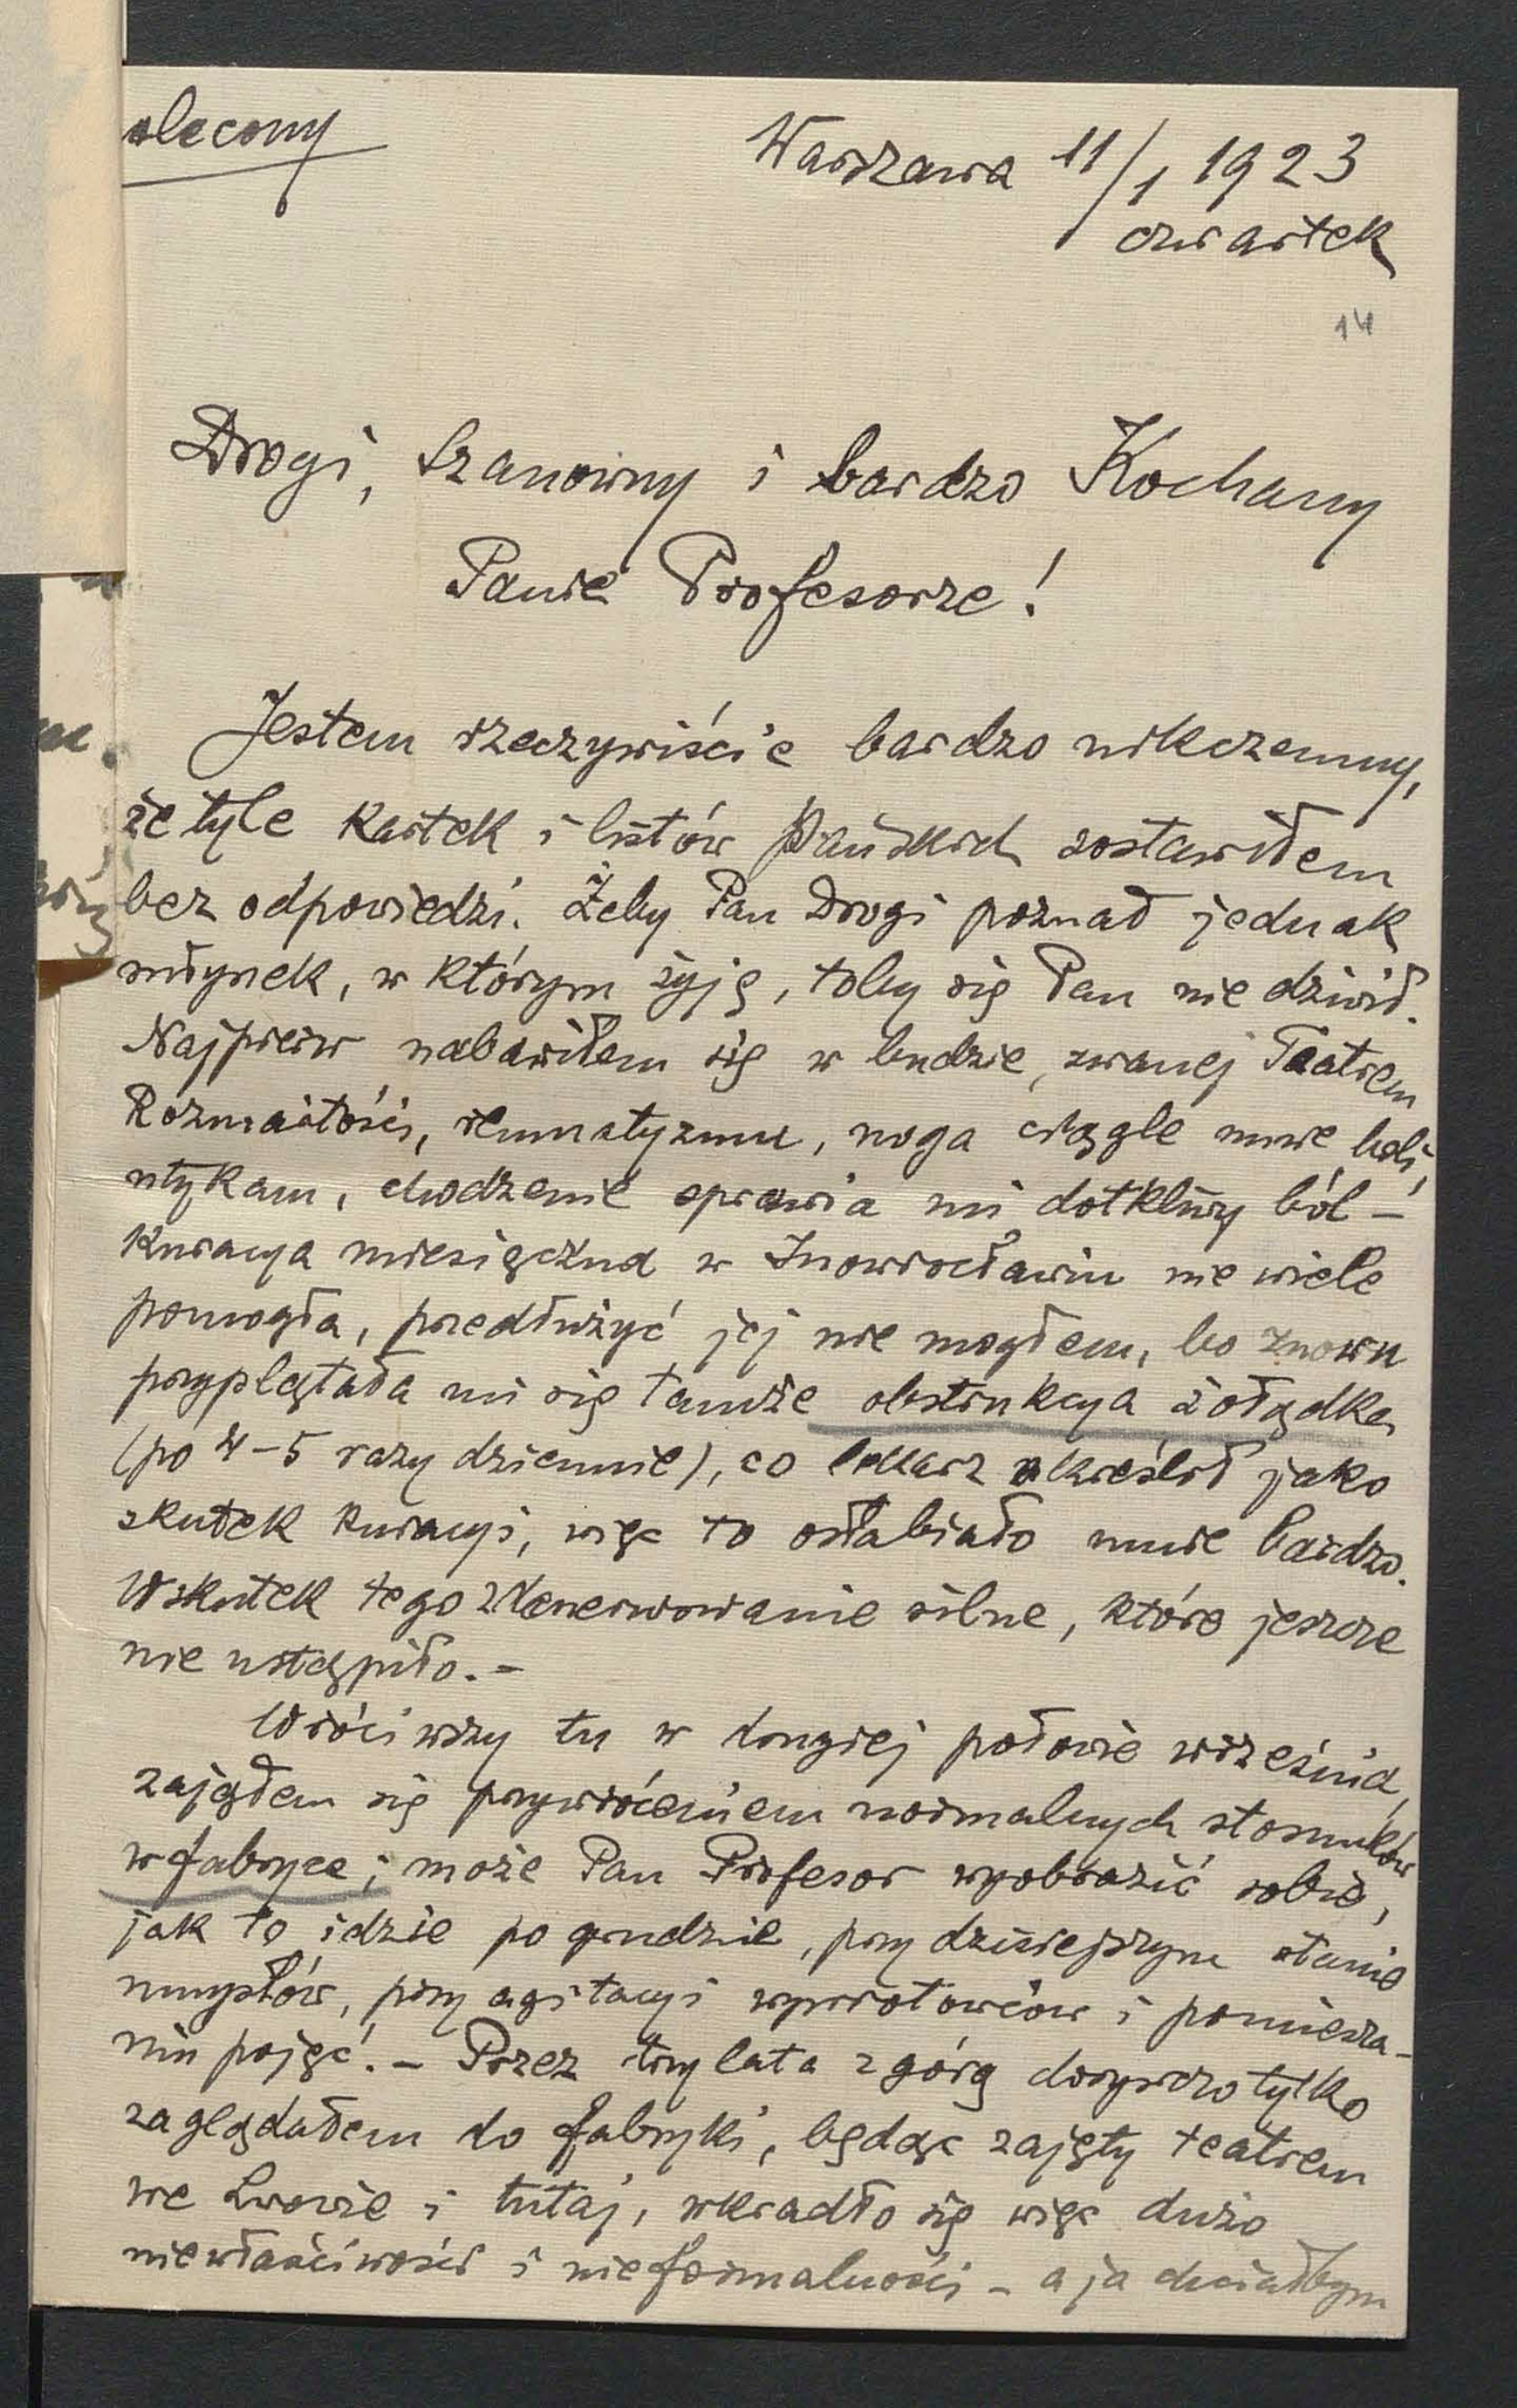 olecony
Warszawa 11/1 1923
czwartek
14
Drogi, Szanowny i bardzo Kochany
Panie Profesorze!
Jestem rzeczywiście bardzo nikczemny,
że tyle kartek i listów Pańskich zostawiłem
bez odpowiedzi. Żeby Pan Drogi poznał jednak
młynek, w którym żyję, toby się Pan nie dziwił.
Najpierw nabawiłem się w budzie, zwanej Teatrem
Rozmaitości, reumatyzmu, noga ciągle mnie boli,
utykam, chodzenie sprawia mi dotkliwy ból –
Kuracya miesięczna w Inowrocławiu nie wiele
pomogła, przedłużyć jej nie mogłem, bo znowu
przyplątała mi się tamże obstrukcya żołądka
(po 4–5 razy dziennie), co lekarz określił jako
skutek kuracyi, więc to osłabiało mnie bardzo.
Wskutek tego zdenerwowanie silne, które jeszcze
nie ustąpiło. –
Wróciwszy tu w drugiej połowie września,
zająłem się przywróceniem normalnych stosunków
w fabryce; może Pan Profesor wyobrazić sobie,
jak to idzie po grudzie, przy dzisiejszym stanie
umysłów, przy agitacyi wywrotowców i pomiesza-
niu pojęć. – Przez trzy lata z górą dorywczo tylko
zaglądałem do fabryki, będąc zajęty teatrem
we Lwowie i tutaj, wkradło się więc dużo
niewłaściwości i nieformalności – a ja chciałbym